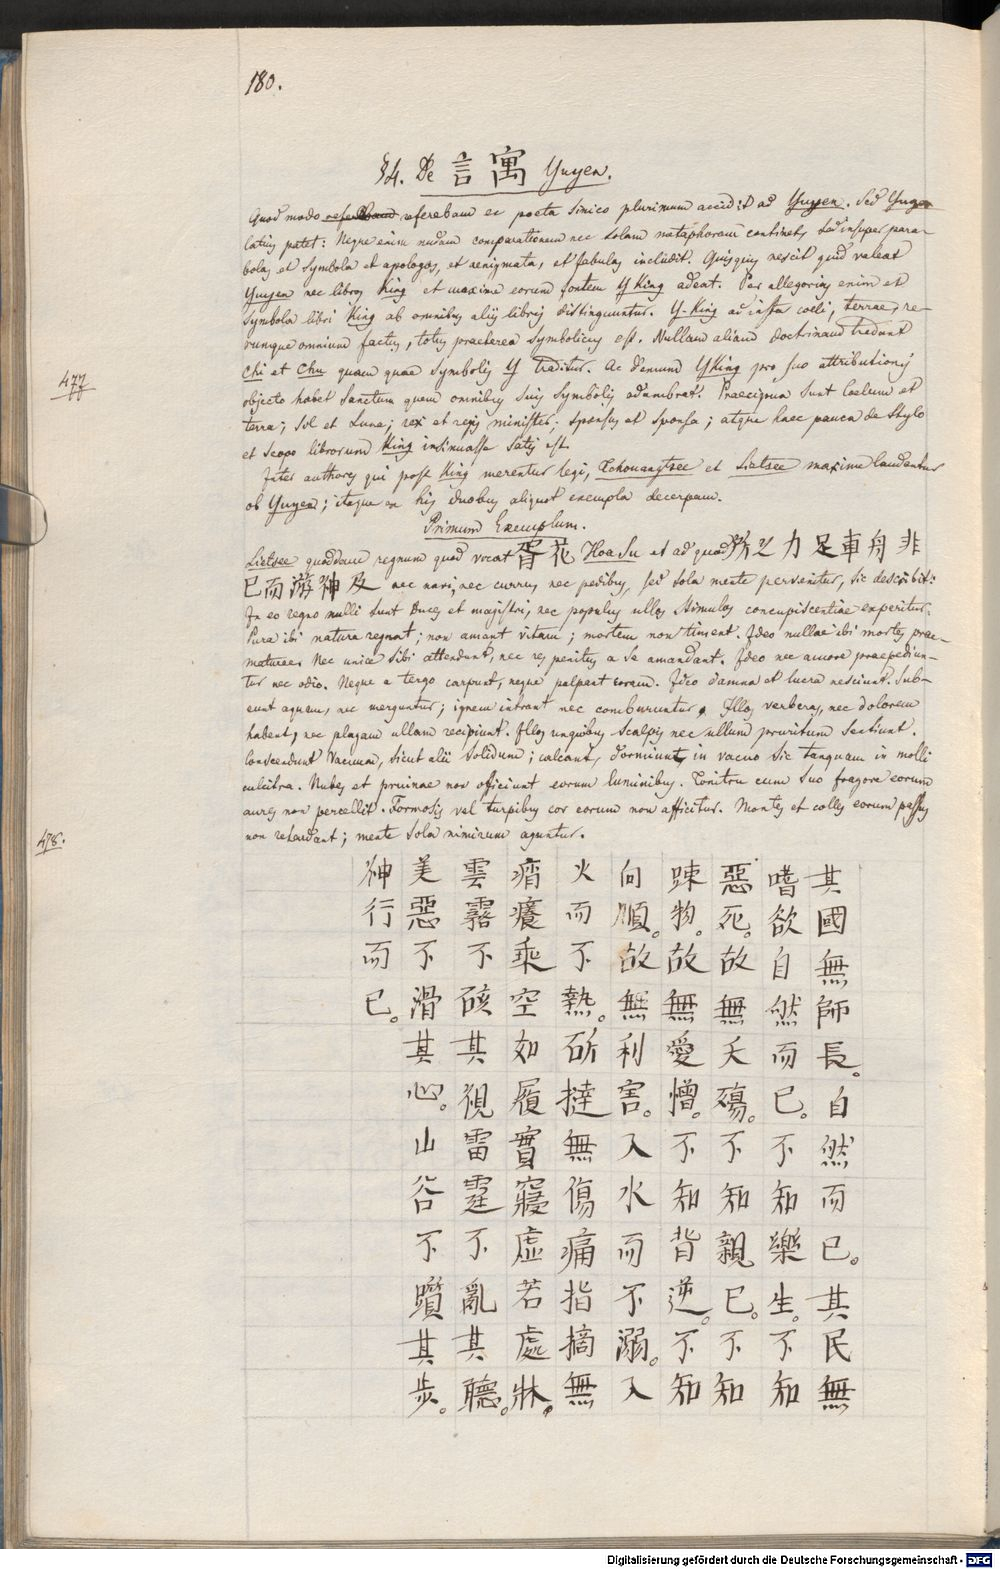 180.
§4. De 言寓 Yuyen.
Quod modo referebam ex poeta Sinico plurimum accidit ad Yuyen. Sed Yuyen
latius patet: Neque enim nudam comparationem nec solam metaphoram continet, sed insuper para-
bolas et symbola et apologos, et aenigmata, et fabulas includit. Quisquis nescit quid valeat
Yuyen nec libros King et maxime eorum fontem Y King adeat. Per allegorias enim et
symbola libri King ab omnibus aliis libris distinguuntur. Y-King ad instar coeli, terrae, re-
rumque omnium factus, totus praeterea symbolicus est. Nullam aliam doctrinam tradunt
Chi et Chu quam quae symbolis Y traditur. Ac demum Y King pro suo attributionis
477
objecto habet Sanctum quem omnibus suis symbolis adumbrat. Praecipua sunt Coelum et
terra; Sol et Luna; rex et regis minister; sponsus et sponsa; atque haec pauca de stylo
et scopo librorum King insinuasse satis est.
Inter authores qui post King merentur legi, Tchouangtsee et Lietsee maxime laudantur
ob Yuyen; itaque ex his duobus aliquot exempla decerpam.
Primum Exemplum.
Lietsee quoddam regnum quod vocat 胥花 Hoa Su et ad quod 所之力足車舟非
已而游神及 nec navi, nec curru, nec pedibus, sed sola mente pervenitur, sic describit:
In eo regno nulli sunt Duces et magistri, nec populus ullos stimulos concupiscentiae experitur.
Pura ibi natura regnat; non amant vitam; mortem non timent. Ideo nullae ibi mortes prae-
maturae. Nec unice sibi attendunt, nec res penitus a se amandant. Ideo nec amore praepediun-
tur nec odio. Neque a tergo carpunt, neque palpant coram. Ideo damna et lucra nesciunt. Sub-
eunt aquam, nec merguntur; ignem intrant nec comburuntur. Illos verberas, nec dolorem
habent, nec plagam ullam recipiunt. Illos unguibus scalpis nec ullum pruritum sentiunt.
Conscendunt Vacuum, sicut alii solidum; calcant, dormiunt in vacuo sic tanquam in molli
culcitra. Nubes et pruinae non officiunt eorum luminibus. Tonitru cum suo fragore eorum
aures non percellit. Formosis vel turpibus cor eorum non afficitur. Montes et colles eorum passus
478.
non retardant; mente sola nimirum aguntur.
其國無師長。自然而已。其民無
嗜欲自然而已。不知樂生。不知
惡死。故無夭殤。不知親已。不知
踈物。故無愛憎。不知背逆。不知
向順。故無利害。入水而不溺。入
火而不熱。斫撻無傷痛指摘無
痟癢乘空如履實寢虛若處牀。
雲霧不硋其視雷霆不亂其聽。
美惡不滑其心。山谷不躓其步。
神行而已。
Digitalisierung gefördert durch die Deutsche Forschungsgemeinschaft - DFG